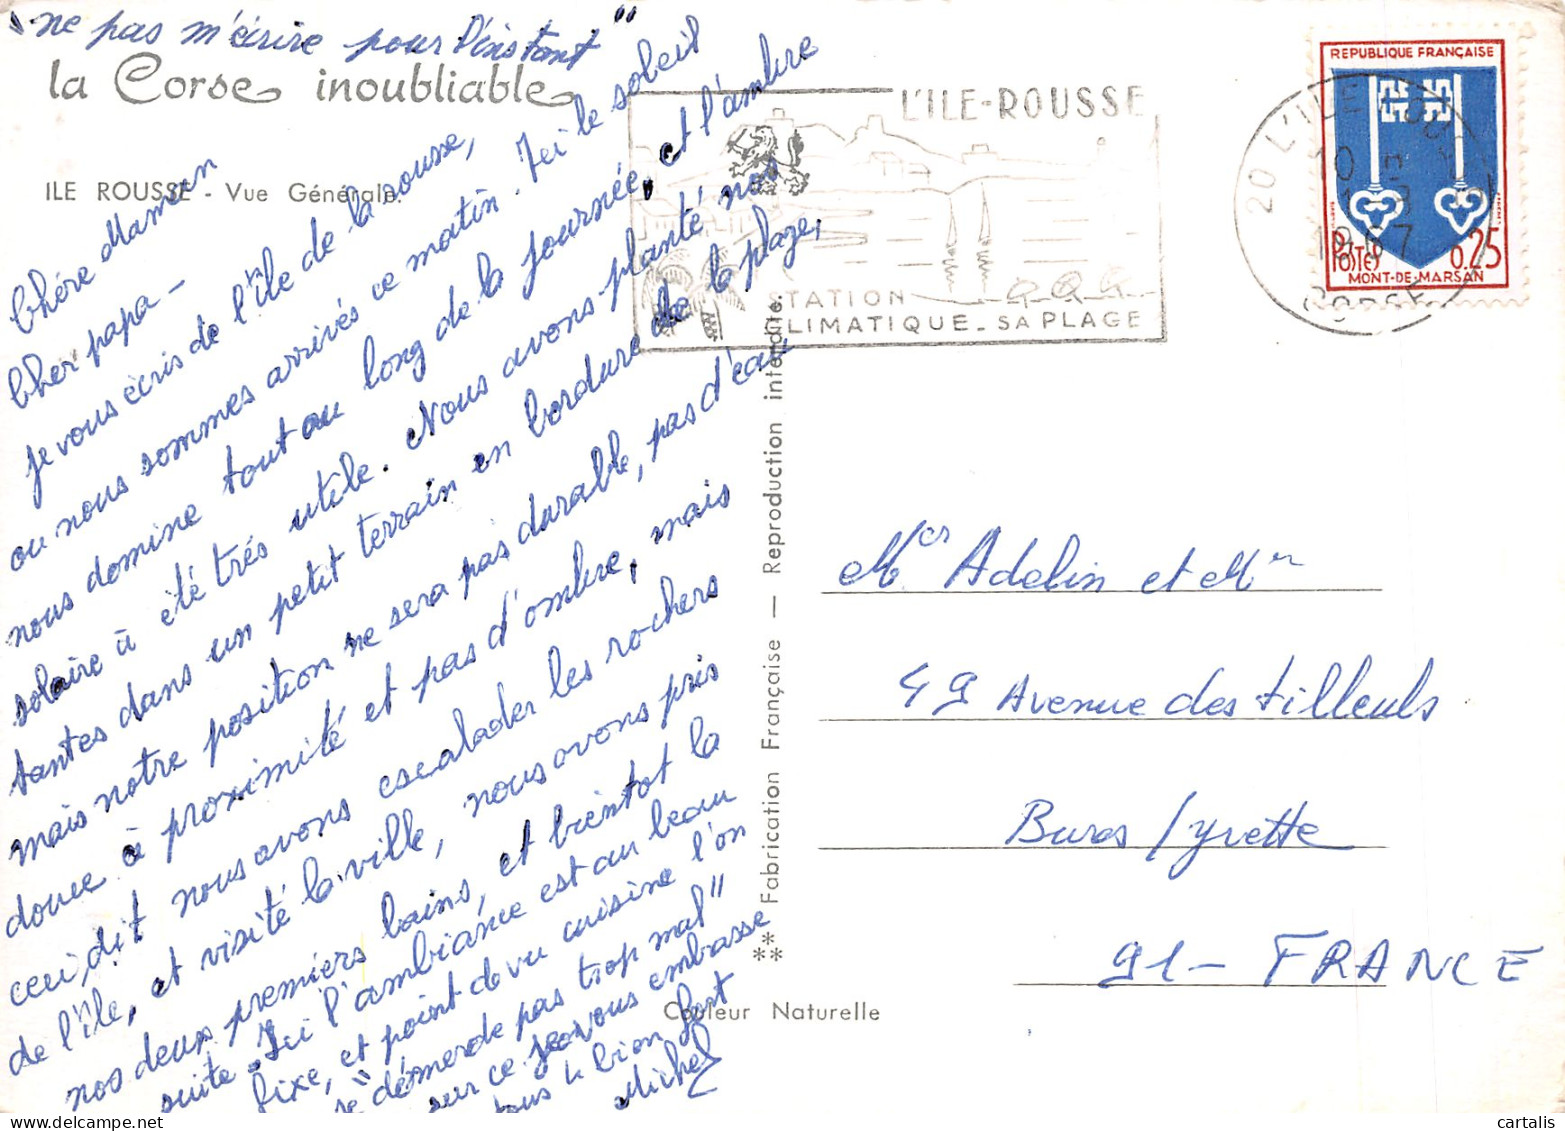 "ne pas m'écrire pour l'instant"
la Corse inoubliable
ILE ROUSSE - Vue Générale.
Chére Maman
Cher papa -
je vous écris de l'île de la rousse,
ou nous sommes arrivés ce matin. Ici le soleil
nous domine tout au long de la journée, et l'ambre
solaire à été trés utile. Nous avons planté nos
tantes dans un petit terrain en bordure de la plage,
mais notre position ne sera pas durable, pas d'eau
douce à proximité et pas d'ombre, mais
ceci dit nous avons escalader les rochers
de l'île, et visité la ville, nous avons pris
nos deux premiers bains, et bientot la
suite - Ici l'ambiance est au beau
fixe, et point de vu cuisine l'on
se "démerde pas trop mal"
sur ce je vous embrasse
tous bien fort
Michel
L'ILE-ROUSSE
STATION
CLIMATIQUE - SA PLAGE
20 L'ILE ROUSSE
10 H
1967
CORSE
REPUBLIQUE FRANÇAISE
POSTES 0,25
MONT-DE-MARSAN
** Fabrication Française — Reproduction interdite.
Couleur Naturelle
Mer Adelin et Mm
49 Avenue des tilleuls
Bures / yvette
91 - FRANCE
cartalis